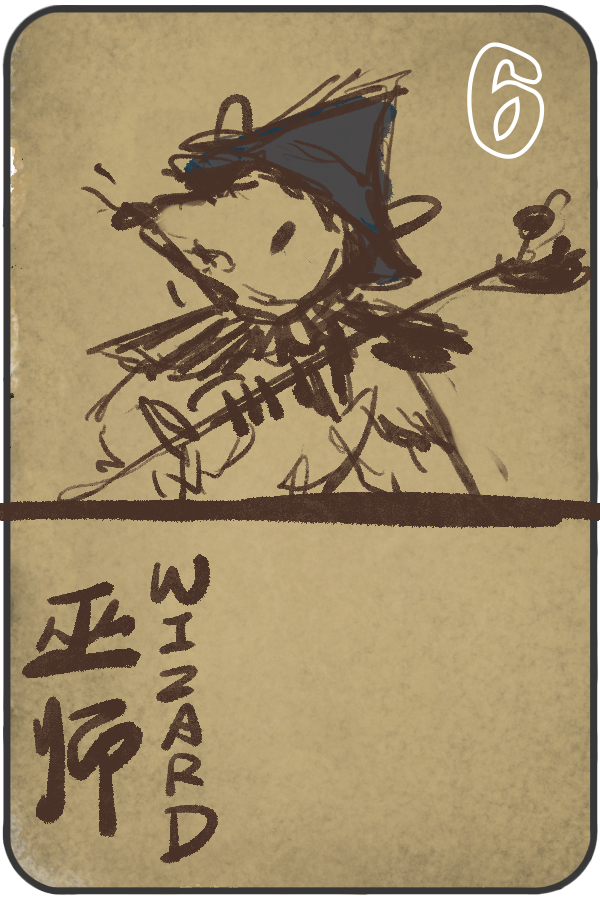 6
巫师
WIZARD